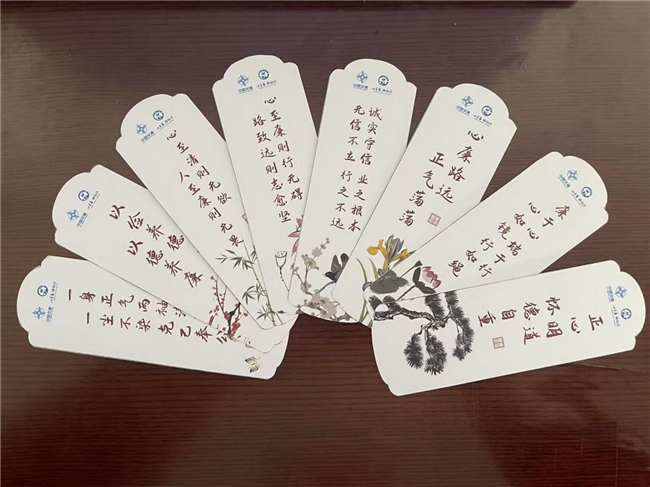 一身正气两袖
一尘不染克己奉
以俭养德
以德养廉
心至清则无欲
人至廉则无畏
心至廉则行无碍
路致远则志愈坚
诚实守信业之根本
无信不立行之不远
心廉路远
正气荡荡
廉于心端于行
心如镜行如绳
正心明道
怀德自重